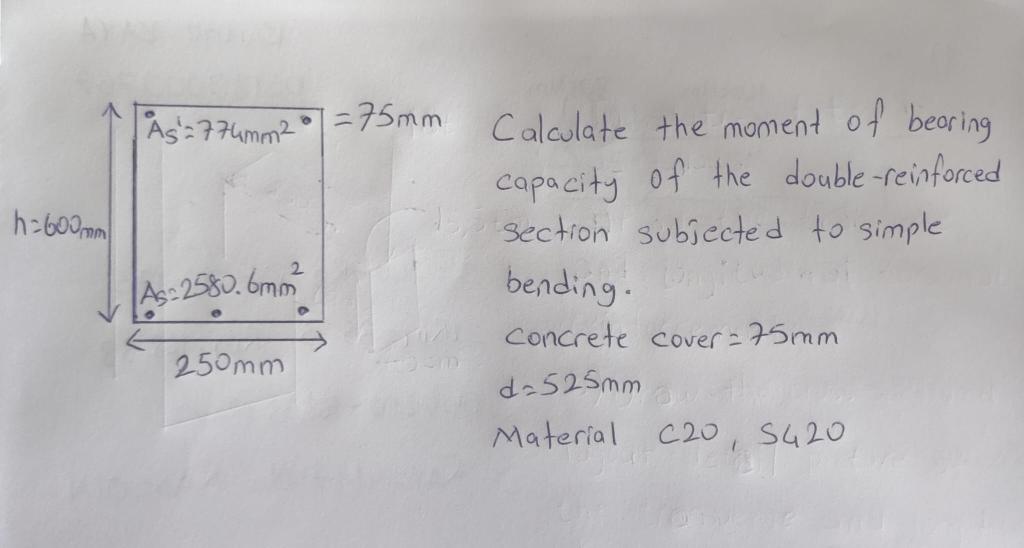 As'=774mm² =75mm
h=600mm
As=2580.6mm²
250mm
Calculate the moment of bearing
capacity of the double-reinforced
section subjected to simple
bending.
concrete cover=75mm
d=525mm
Material C20, S420